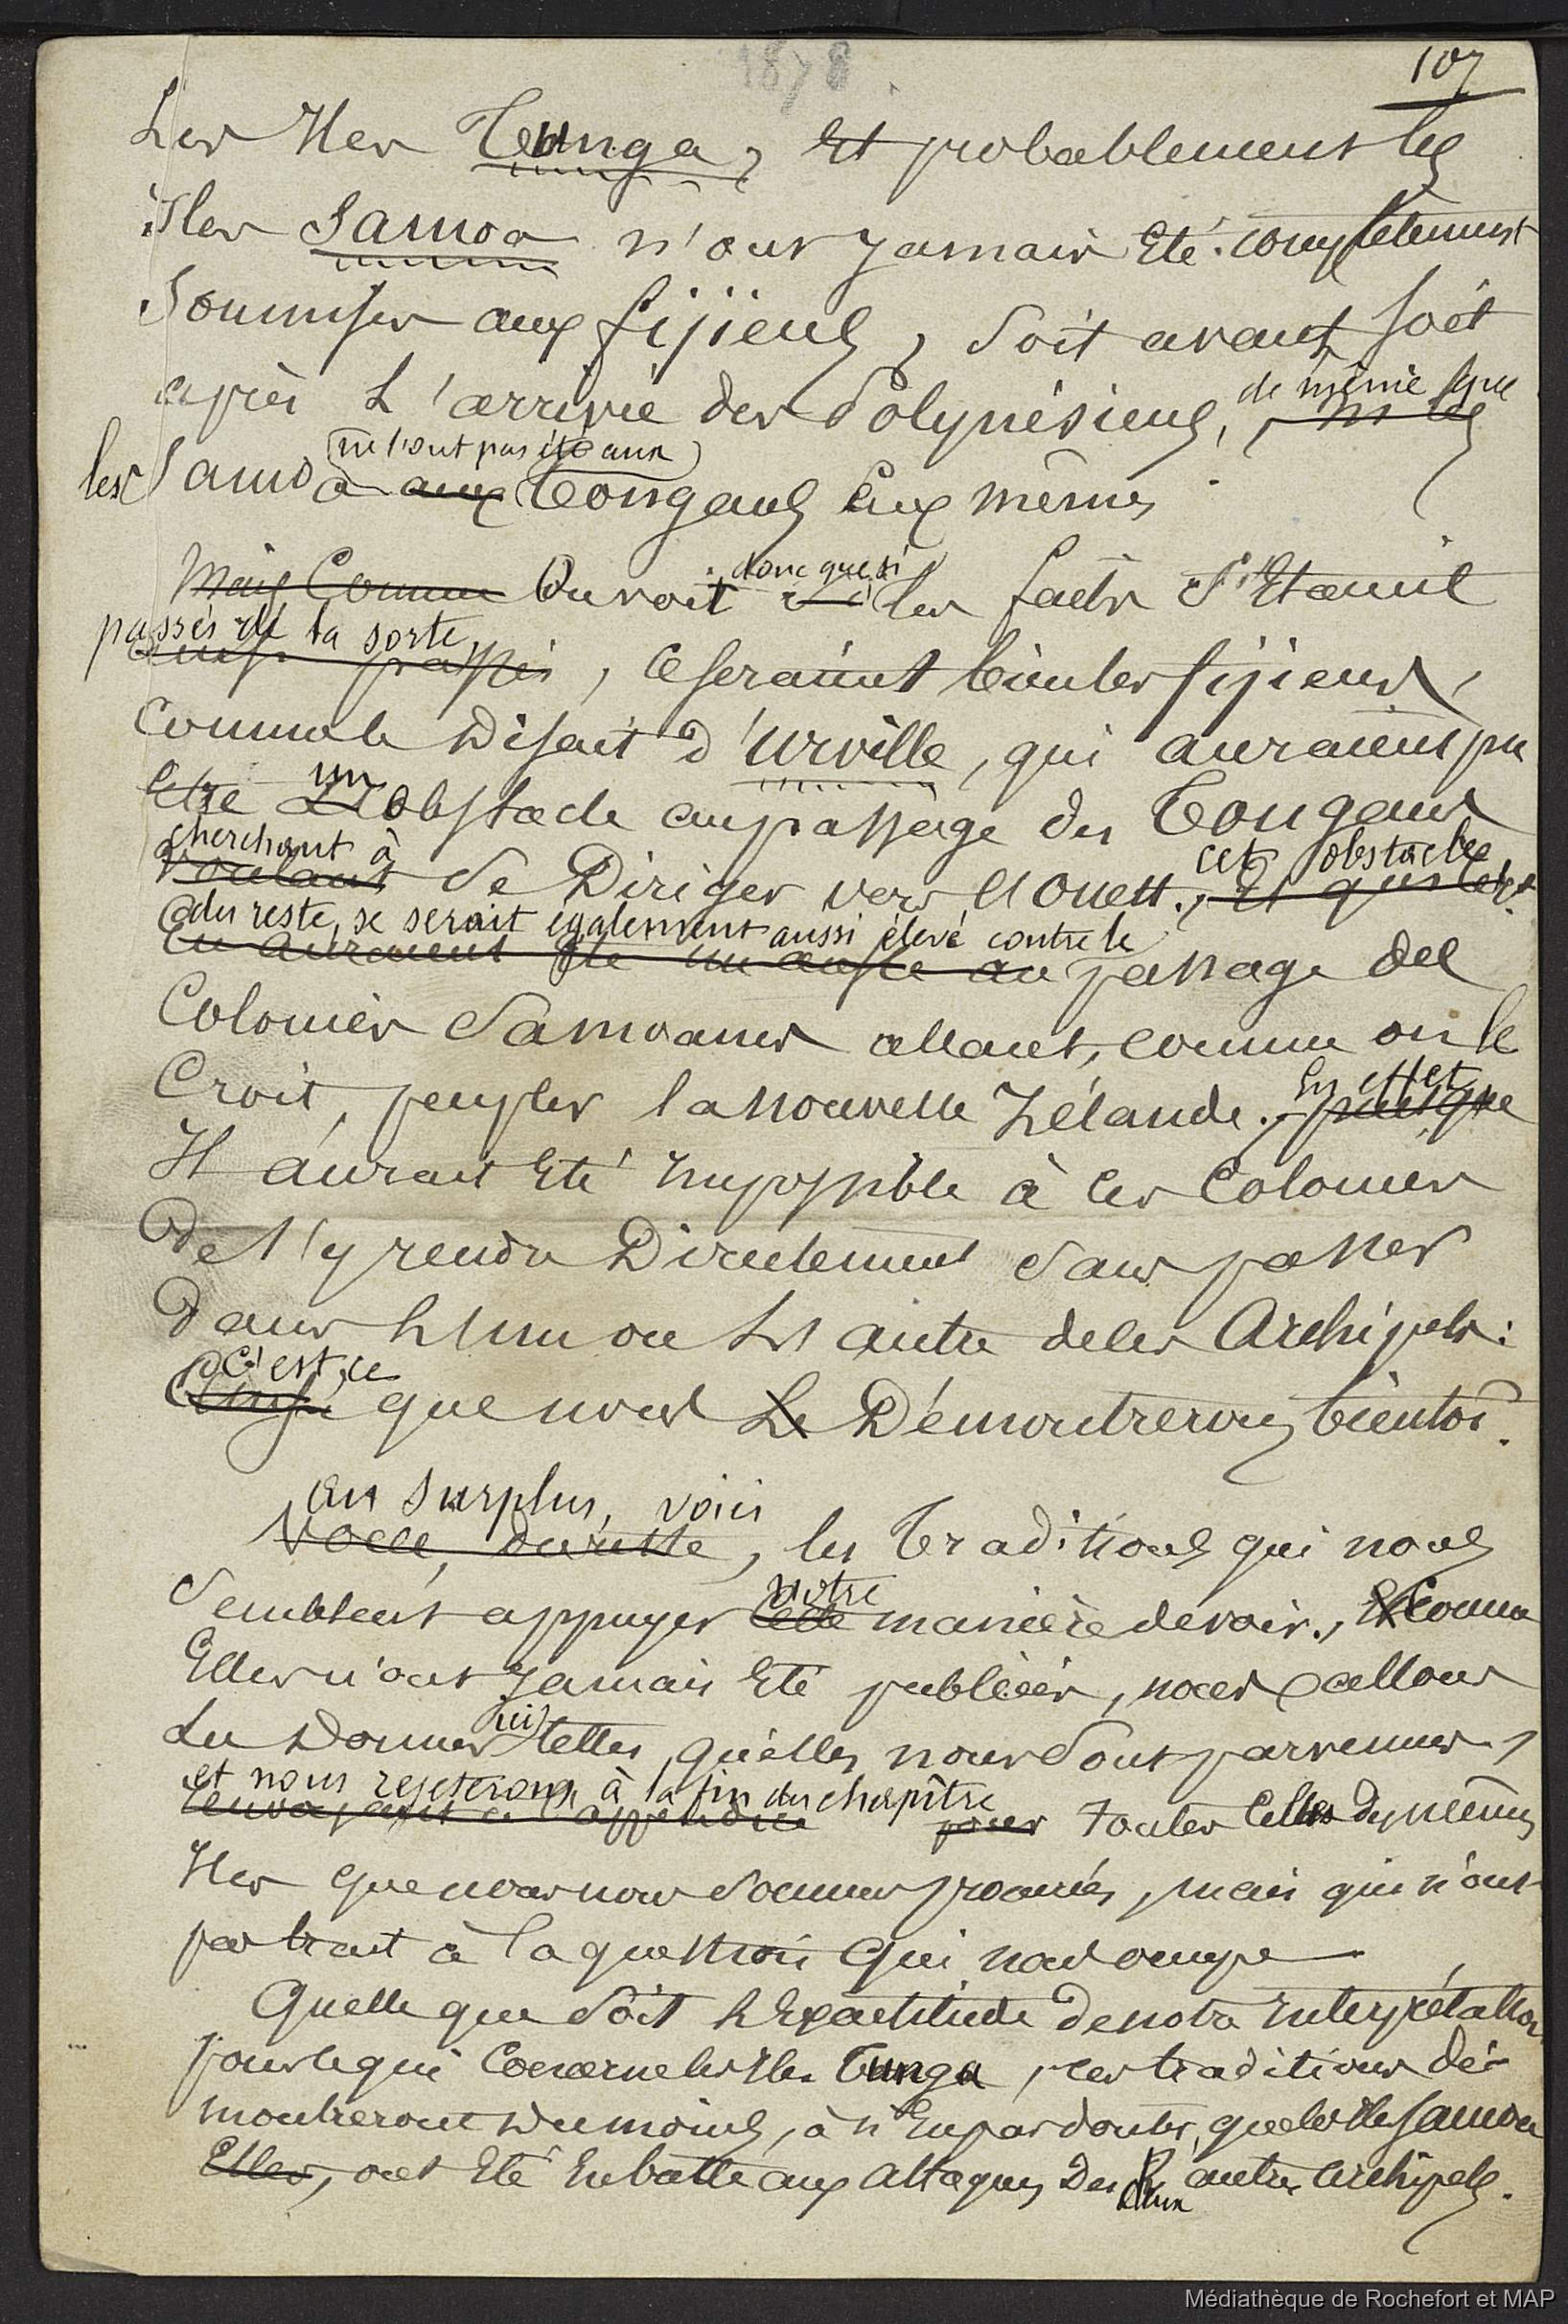 1878
107
Les Iles Tunga, et probablement les
iles Samoa n'ont jamais été complètement
Soumises aux fijiens, soit avant soit
après l'arrivée des Polynésiens, de même que
ni les
ne l'ont pas été aux
les Samoa aux Tongans Eux mêmes
donc que si
Mais Comme On voit les faits S'Etaient
passés de la sorte
ainsi passés, ce seraient bien les fijiens,
comme le Disait D'Urville, qui auraient pu
un
Etre obstacle au passage des Tongans
cherchant à cet obstacle,
voulant se Diriger vers l'Ouest.
du reste, se serait également aussi élevé contre le
En auraient été un aussi au passage des
Colonies Samoanes allant, comme on le
En effet
Croit, peupler la Nouvelle Zélande. puisque
Il aurait été impossible à ces Colonies
De s'y rendre Directement sans passer
Dans l'un ou l'autre de ces Archipels:
C'est ce
Ainsi que nous Le Démontrerons bientôt.
au surplus, voici
Voici, du reste, les Traditions qui nous
notre
Semblent appuyer cette manière de voir., Et Comme
Elles n'ont jamais été publiées, nous allons
ici
les Donner telles qu'elles nous sont parvenues,
et nous rejeterons à la fin du chapitre
renvoyant à l'appendice pour toutes Celles des mêmes
Iles que nous nous sommes procurées, mais qui n'ont
pas trait à la question qui nous occupe
Quelle que soit l'Exactitude de notre interprétation
pour ce qui Concerne les Iles Tunga, ces traditions dé-
montreront du moins, à n'En pas douter, que les Iles Samoa
Elles, ont été En butte aux attaques Des autres Archipels.
deux
Médiathèque de Rochefort et MAP